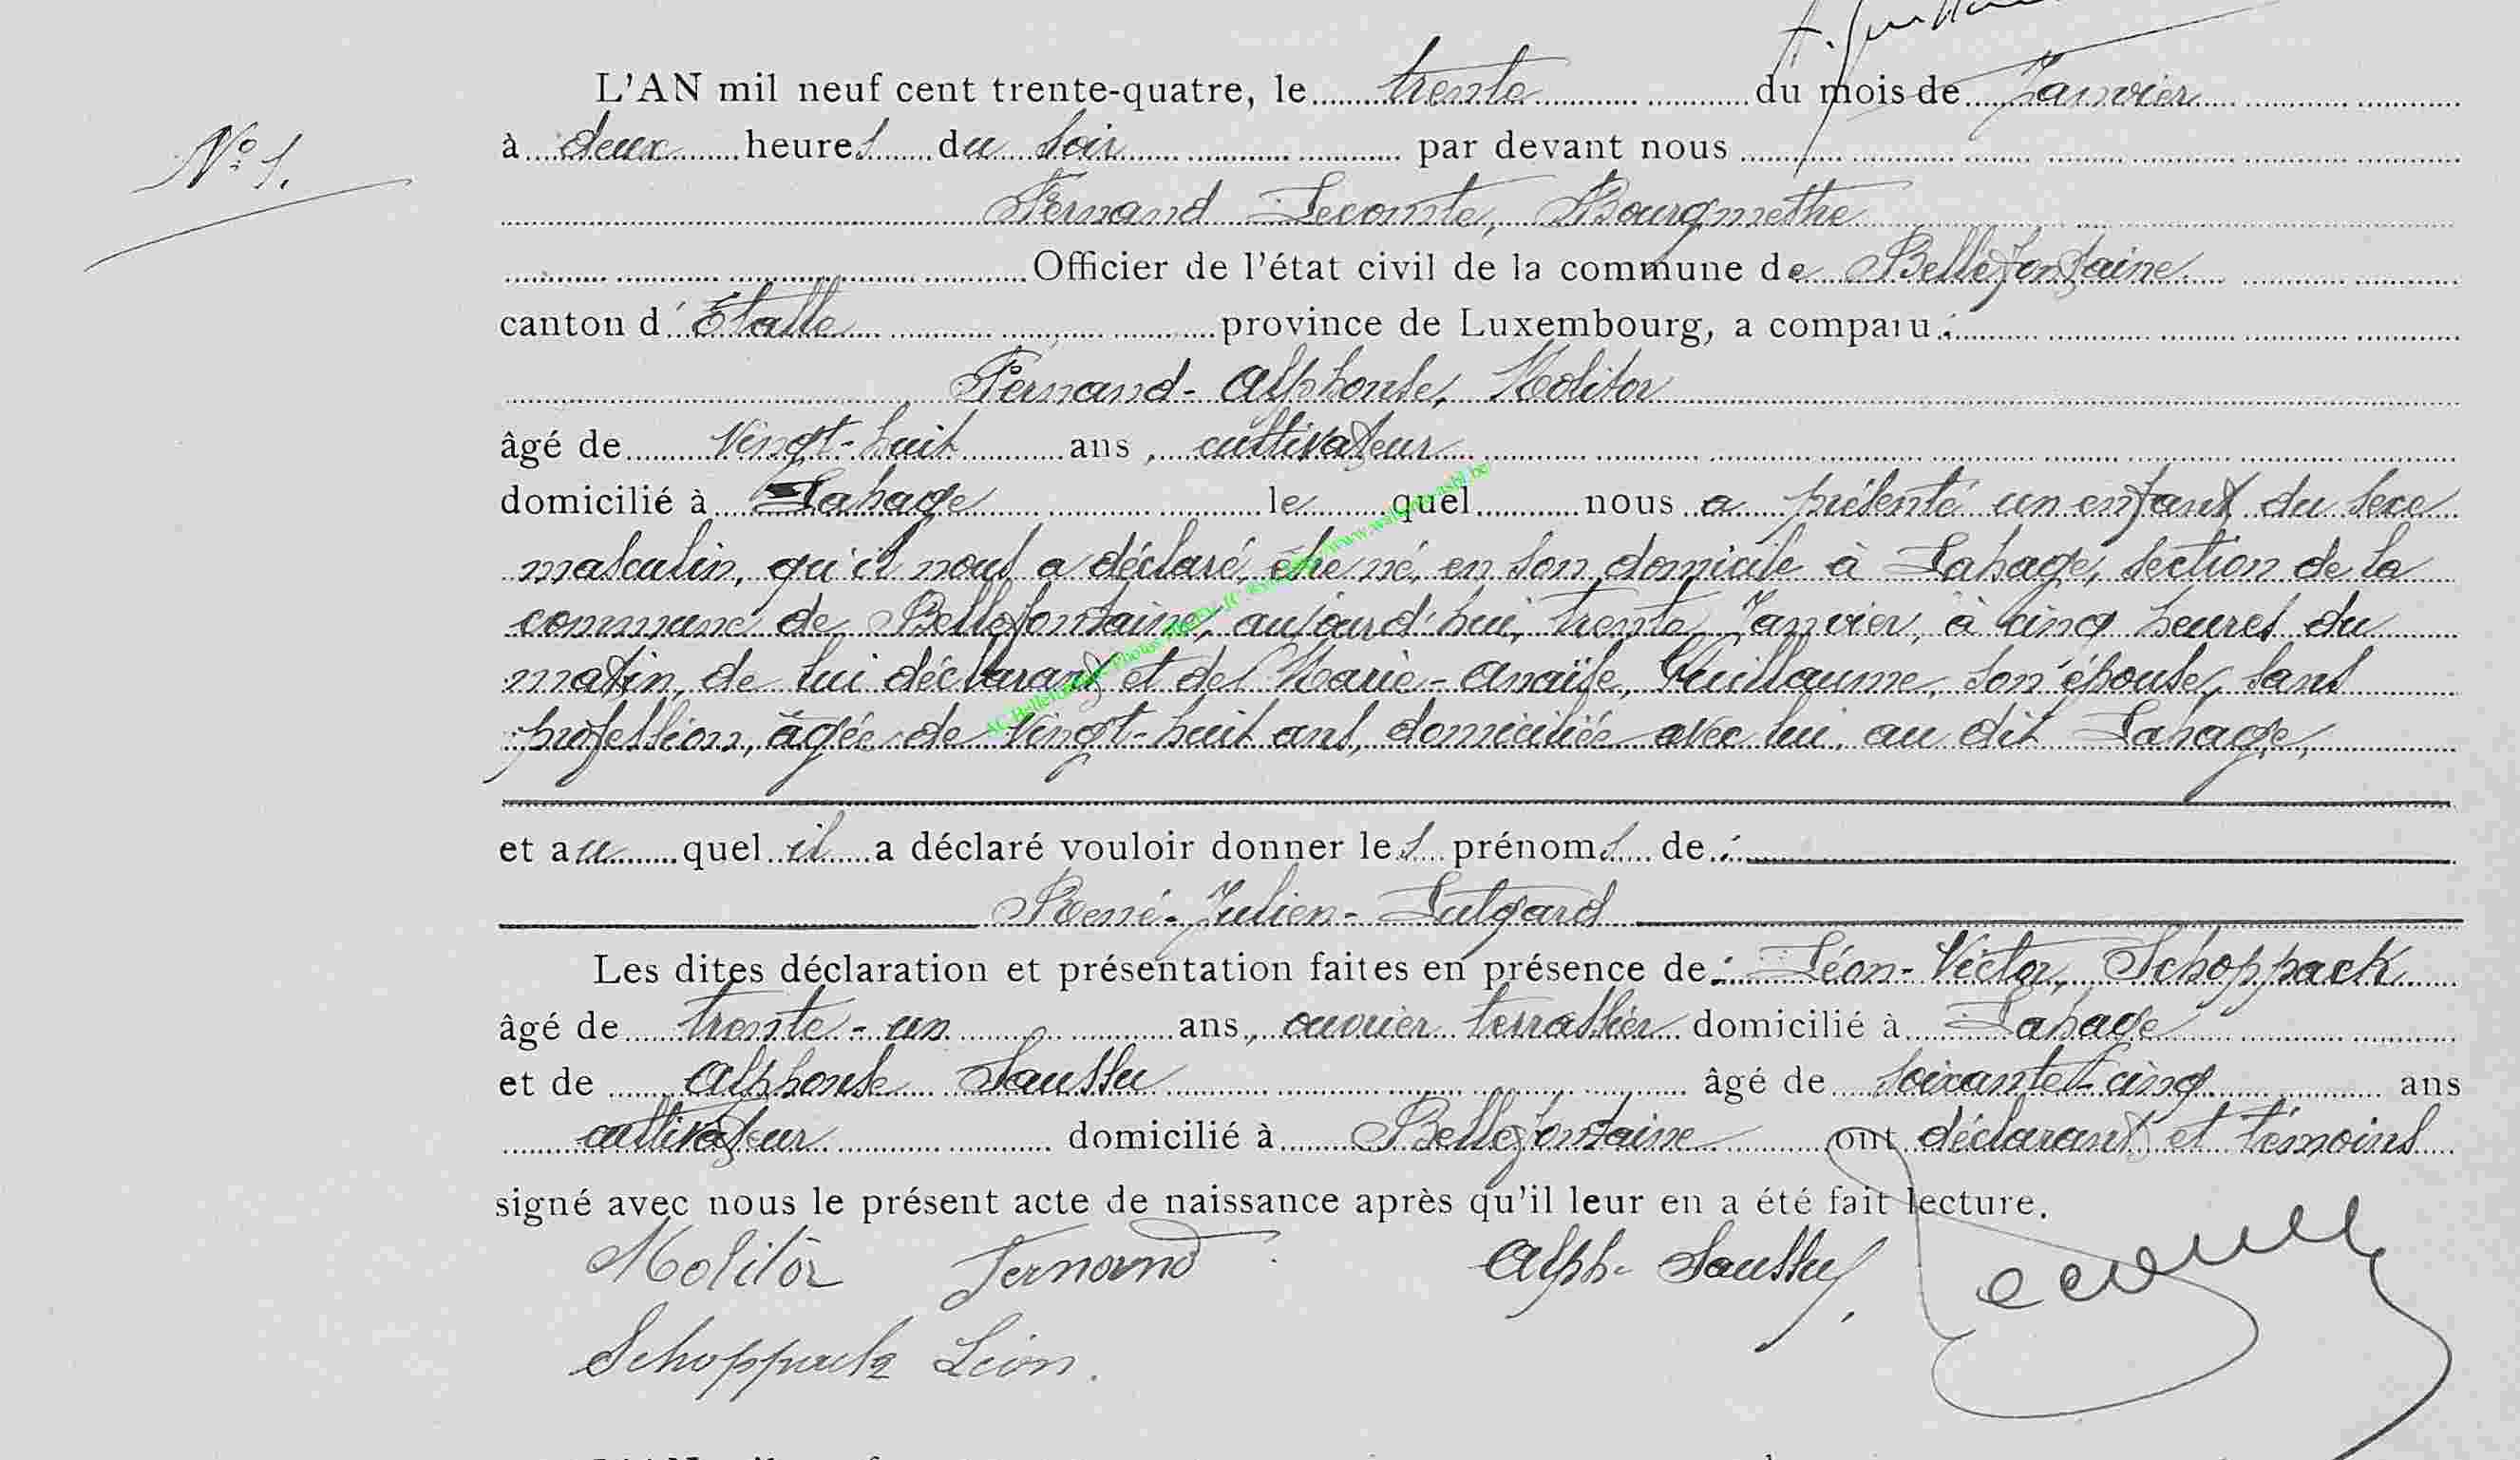 L'AN mil neuf cent trente-quatre, le trente du mois de Janvier
N° 1.
à deux heures du soir par devant nous
Fernand Lecomte, Bourgmestre
Officier de l'état civil de la commune de Bellefontaine
canton d'Etalle province de Luxembourg, a comparu :
Fernand-Alphonse, Molitor
âgé de vingt-huit ans, cultivateur
domicilié à Lahage le quel nous a présenté un enfant du sexe
masculin, qu'il nous a déclaré, être né, en son domicile à Lahage, section de la
commune de Bellefontaine, aujourd'hui, trente Janvier, à cinq heures du
matin, de lui déclarant et de Marie-Anaïse, Guillaume, son épouse, sans
profession, âgée de vingt-huit ans, domiciliée avec lui, au dit Lahage,
et au quel il a déclaré vouloir donner les prénoms de :
René-Julien-Lutgard
Les dites déclaration et présentation faites en présence de : Léon-Victor, Schoppack
âgé de trente-un ans, ouvrier terrassier domicilié à Lahage
et de Alphonse Saussu âgé de soixante-cinq ans
cultivateur domicilié à Bellefontaine ont déclarant et témoins
signé avec nous le présent acte de naissance après qu'il leur en a été fait lecture.
Molitor Fernand Alph. Saussu
Schoppack Léon.